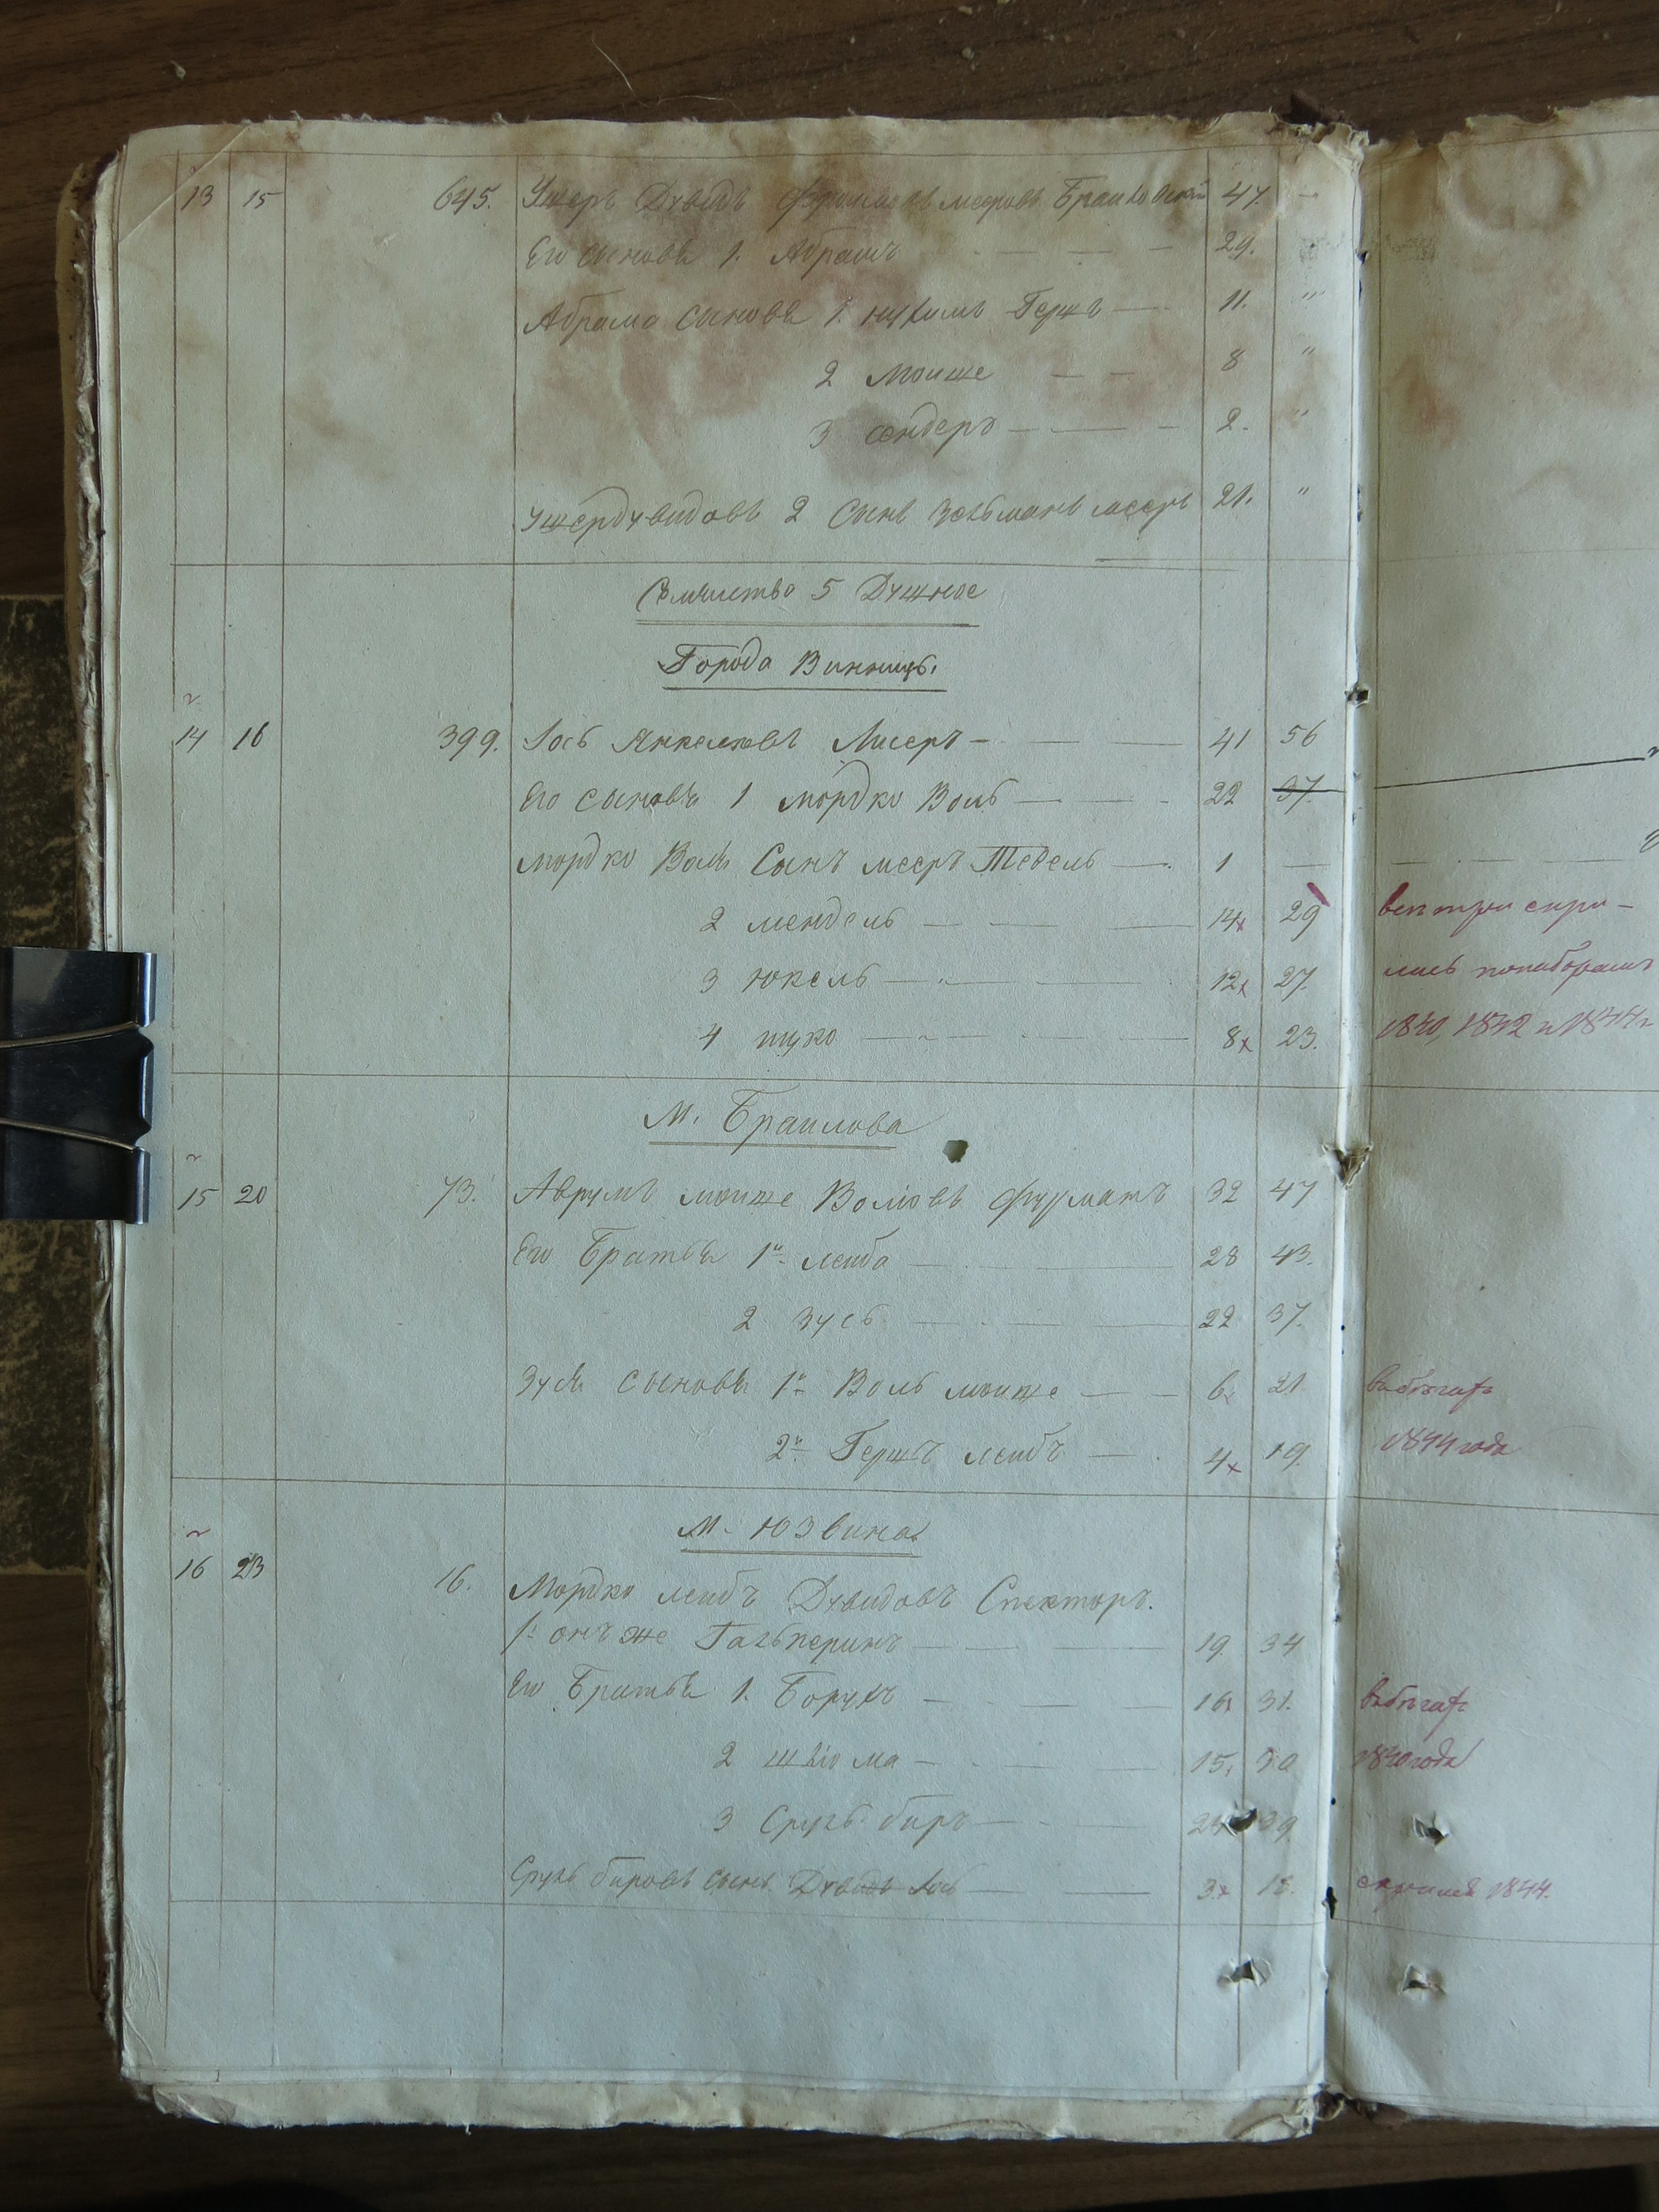 13 15 645. Ушеръ Дувидъ Фроимовъ мееровъ Браиловскій 47. —
Его сыновья 1. Абрамъ — — — 29.
Абрама сыновья 1. нухимъ Гершъ — 11. "
2 Моише — — 8 "
3 сендеръ — — — 2. "
ушердувидовъ 2 сынъ Зельманъ мееръ 21. "
Семейство 5 Душное
Города Винницы.
14 16 399. Iось Янкелевъ Лисеръ — — — 41 56
Его сыновья 1 мордко Воль — — 22 37.
мордко Воля Сынъ мееръ Тевель — 1 —
2 мендель — — — 14х 29 вси три скры-
3 юкель — — — 12х 27. лись по наборамъ
4 ицко — — — 8х 23. 1840, 1842 и 1844 г
М. Браилова
15 20 73. Аврумъ моише Волiовъ Фурманъ 32 47
Его Братья 1й лейба — — 28 43.
2 Зусь — — — 22 37.
Зуся сыновья 1й Воль моише — — 6х 21. въ бѣгахъ
2й Гершъ лейбъ — 4х 19. 1844 года
М. Юзвина
16 23 16. Мордко лейбъ Дувидовъ Спекторъ.
1й онъ же Гальперинъ — — 19. 34
Его Братья 1. Борухъ — — — 16х 31. въ бѣгахъ
2 шлiома — — — 15х 30 1840 года
3 Сруль беръ — — — 24 39.
Сруль беровъ сынъ Дувидъ Iось — — 3х 18. скрылся 1844.